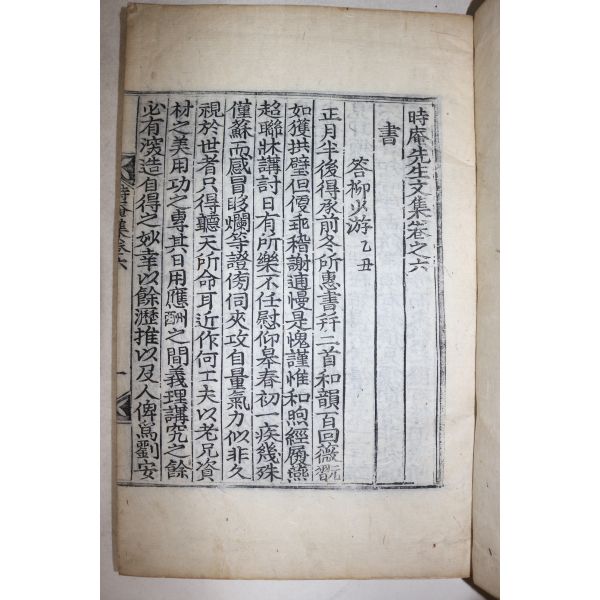 時庵先生文集卷之六
書
答柳少游 乙丑
正月半後得承前冬所惠書幷二首和韻百回薇翫
如獲拱璧但優乖稽謝逋慢是愧謹惟和煦經履燕
超聯牀講討日有所樂不任慰仰皐春初一疾幾殊
僅蘇而感冒眵爛等證傍伺夾攻自量氣力似非久
視於世者只得聽天所命耳近作何工夫以老兄資
材之美用功之專其日用應酬之間義理講究之餘
必有深造自得之妙幸以餘瀝推以及人俾爲劉安
時庵集卷六
一